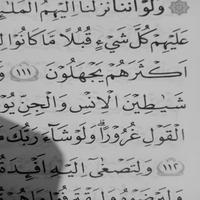 وَلَوْ أَنَّنَا نَزَّلْنَا إِلَيْهِمُ
عَلَيْهِمْ كُلَّ شَىْءٍ قُبُلًا مَّا كَانُوا۟
أَكْثَرَهُمْ يَجْهَلُونَ ١١١
شَيَٰطِينَ ٱلْإِنسِ وَٱلْجِنِّ
ٱلْقَوْلِ غُرُورًا ۚ وَلَوْ شَآءَ رَبُّكَ
١١٢ وَلِتَصْغَىٰٓ إِلَيْهِ أَفْـِٔدَةُ